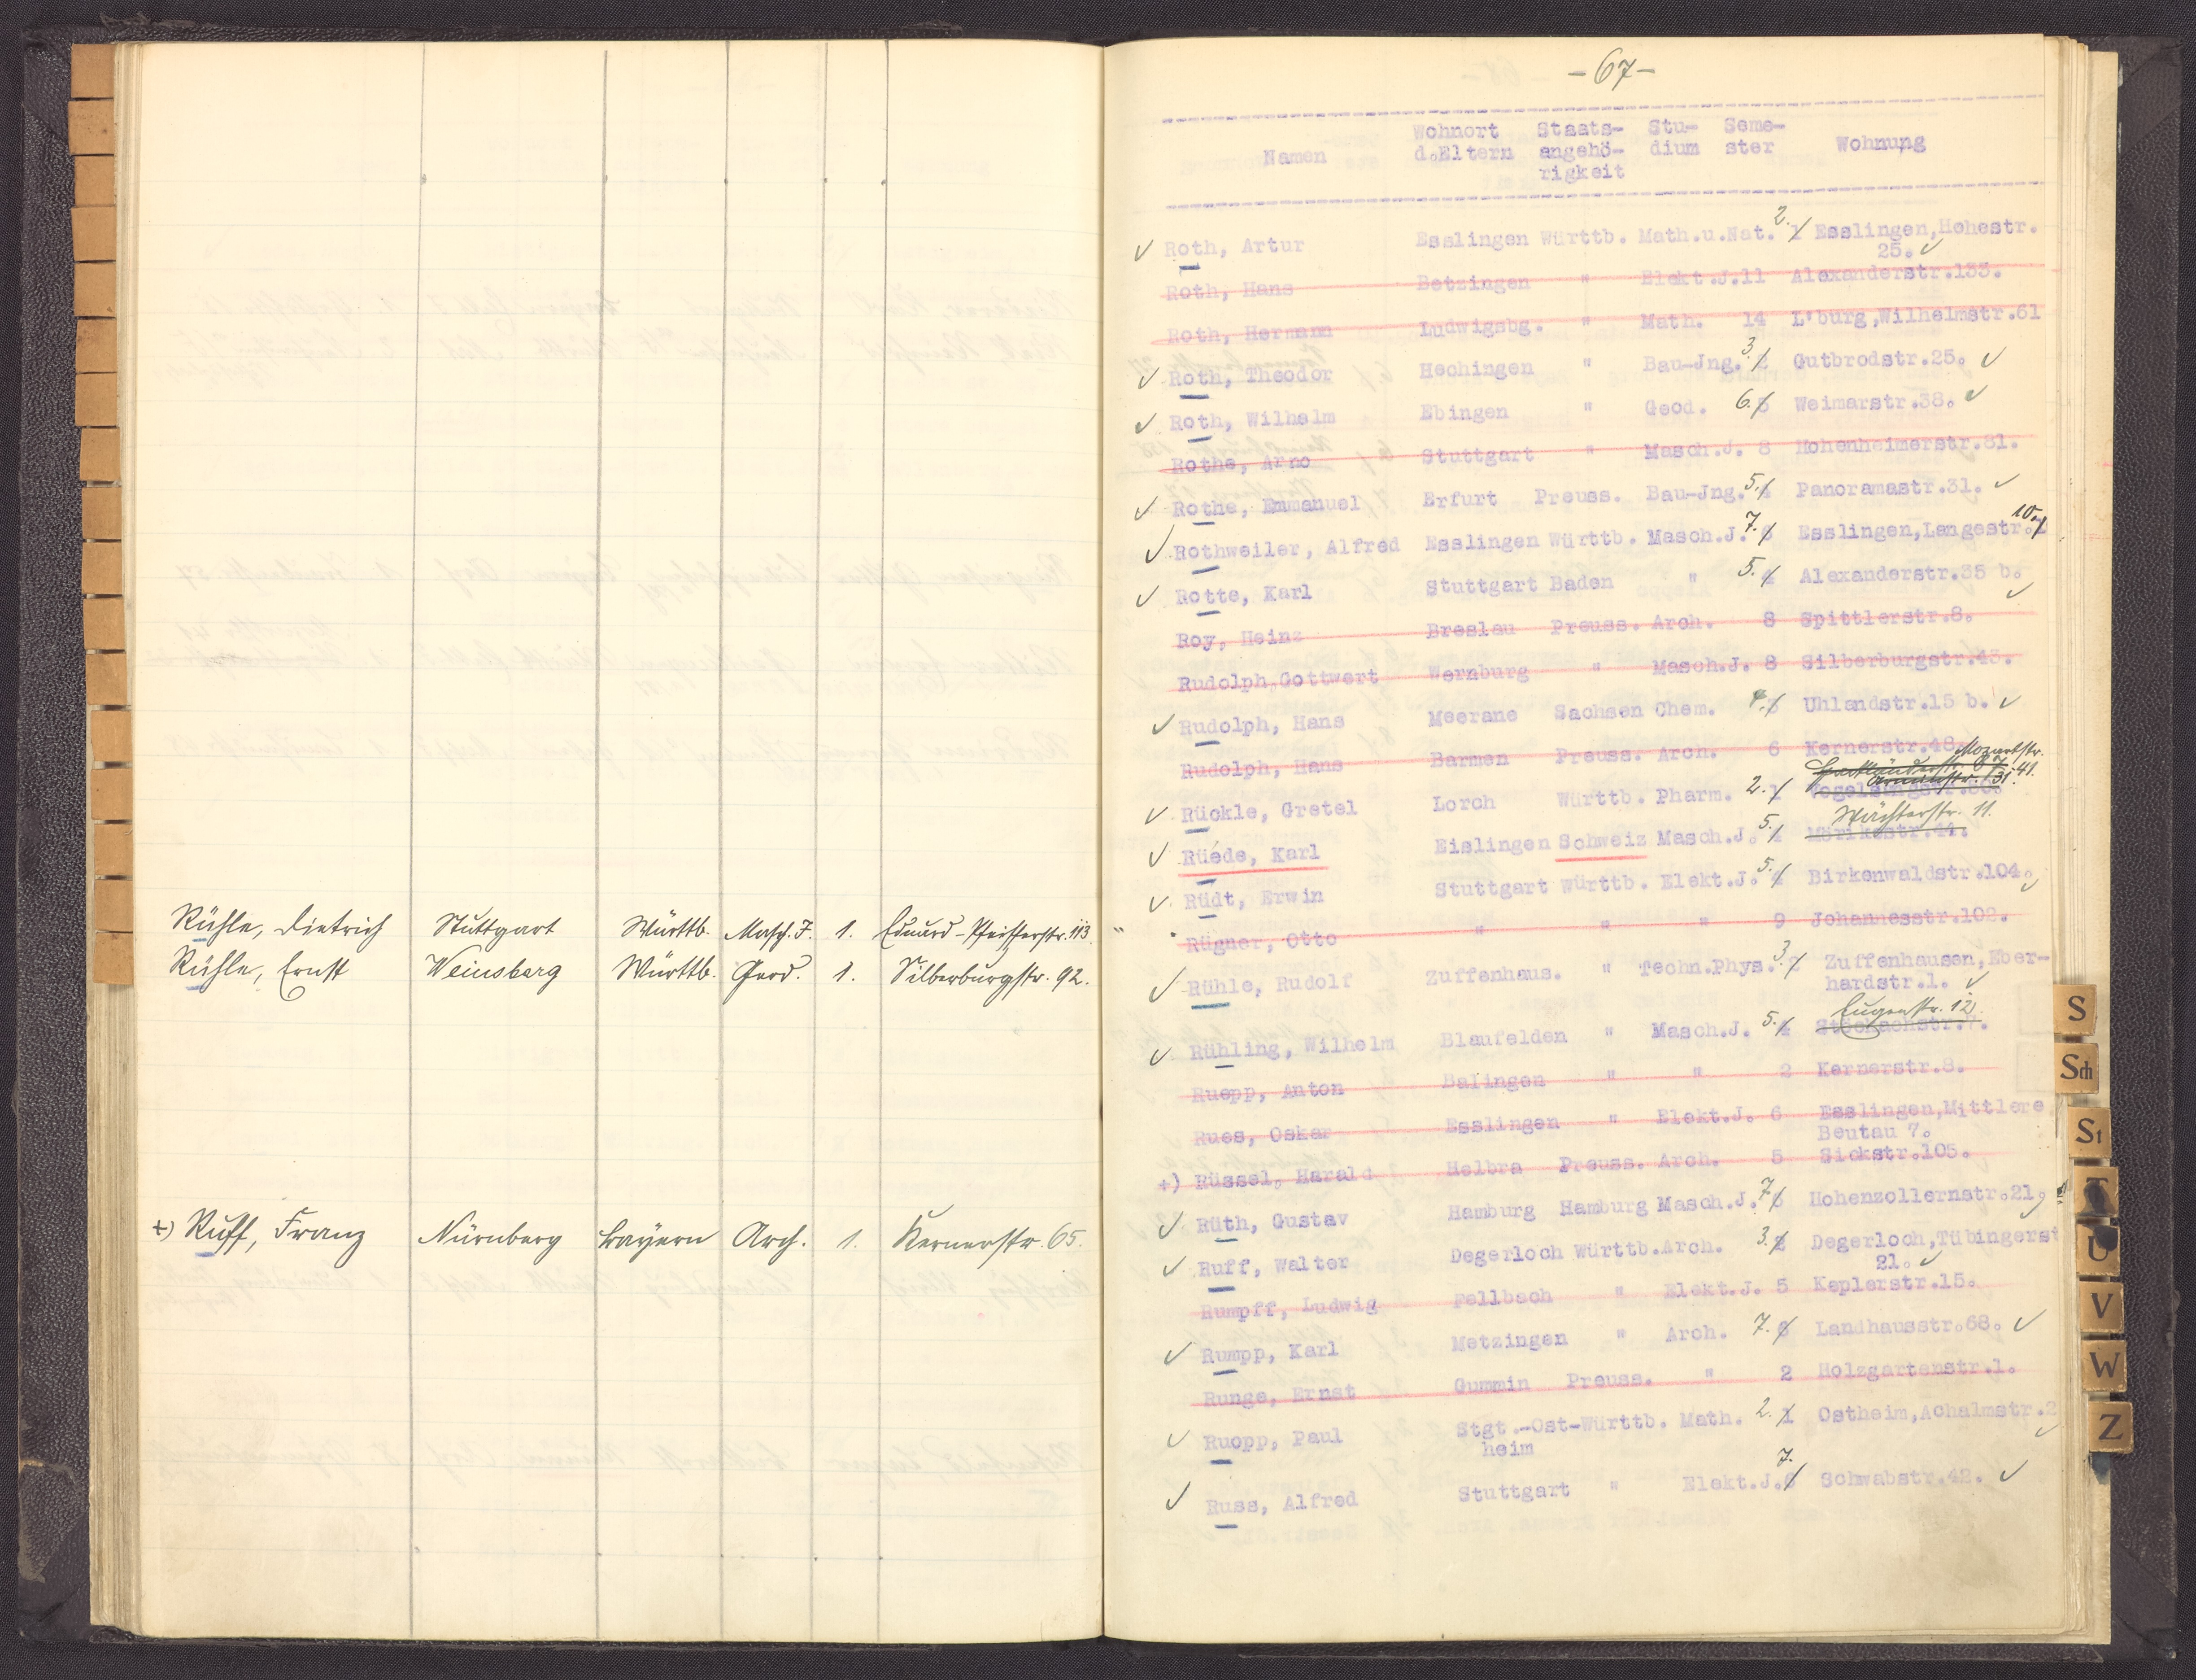 Rühle, Dietrich Stuttgart Württb. Masch.J. 1. Eduard-Pfeifferstr. 113.
Rühle, Ernst Weinsberg Württb. Geod. 1. Silberburgstr. 92.
+) Ruff, Franz Nürnberg Bayern Arch. 1. Kernerstr. 65.
-67-
Namen Wohnort d.Eltern Staats-angehö-rigkeit Stu-dium Seme-ster Wohnung
Roth, Artur Esslingen Württb. Math.u.Nat. 2. 1 Esslingen,Hohestr.
25.
Roth, Hans Betzingen " Elekt.J.11 Alexanderstr.133.
Roth, Hermann Ludwigsbg. " Math. 14 L'burg,Wilhelmstr.61
Roth, Theodor Hechingen " Bau-Jng. 3. 2 Gutbrodstr.25.
Roth, Wilhelm Ebingen " Geod. 6. 5 Weimarstr.38.
Rothe, Arno Stuttgart " Masch.J. 8 Hohenheimerstr.81.
Rothe, Emmanuel Erfurt Preuss. Bau-Jng. 5. 4 Panoramastr.31.
Rothweiler, Alfred Esslingen Württb. Masch.J. 7. 6 Esslingen,Langestr. 10
Rotte, Karl Stuttgart Baden " 5. 4 Alexanderstr.35 b.
Roy, Heinz Breslau Preuss. Arch. 8 Spittlerstr.8.
Rudolph,Gottwert Wernburg " Masch.J. 8 Silberburgstr.43.
Rudolph, Hans Meerane Sachsen Chem. Uhlandstr.15 b.
Rudolph, Hans Barmen Preuss. Arch. 6 Kernerstr.48.
Mozartstr.
41.
Rückle, Gretel Lorch Württb. Pharm. 2. 1
Wächterstr. 11.
Rüede, Karl Eislingen Schweiz Masch.J. 5. 4 Mörikestr.44.
Rüdt, Erwin Stuttgart Württb. Elekt.J. 5. 4 Birkenwaldstr.104.
Rügner, Otto " " " 9 Johannesstr.102.
Rühle, Rudolf Zuffenhaus. " Techn.Phys. 3. 2 Zuffenhausen,Eber-
hardstr.1.
Eugenstr. 12.
Rühling, Wilhelm Blaufelden " Masch.J. 5. 4 Stöckachstr.7.
Ruepp, Anton Balingen " " 2 Kernerstr.8.
Rues, Oskar Esslingen " Elekt.J. 6 Esslingen,Mittlere
Beutau 7.
+) Rüssel, Harald Helbra Preuss. Arch. 5 Sickstr.105.
Rüth, Gustav Hamburg Hamburg Masch.J. 7. 6 Hohenzollernstr.21
Ruff, Walter Degerloch Württb.Arch. 3. 2 Degerloch,Tübingerst
21.
Rumpff, Ludwig Fellbach " Elekt.J. 5 Keplerstr.15.
Rumpp, Karl Metzingen " Arch. 7. 6 Landhausstr.68.
Runge, Ernst Gummin Preuss. " 2 Holzgartenstr.1.
Ruopp, Paul Stgt.-Ost- Württb. Math. 2. 1 Ostheim,Achalmstr.2
heim
Russ, Alfred Stuttgart " Elekt.J. 7. 6 Schwabstr.42.
S
Sch
St
T
U
V
W
Z